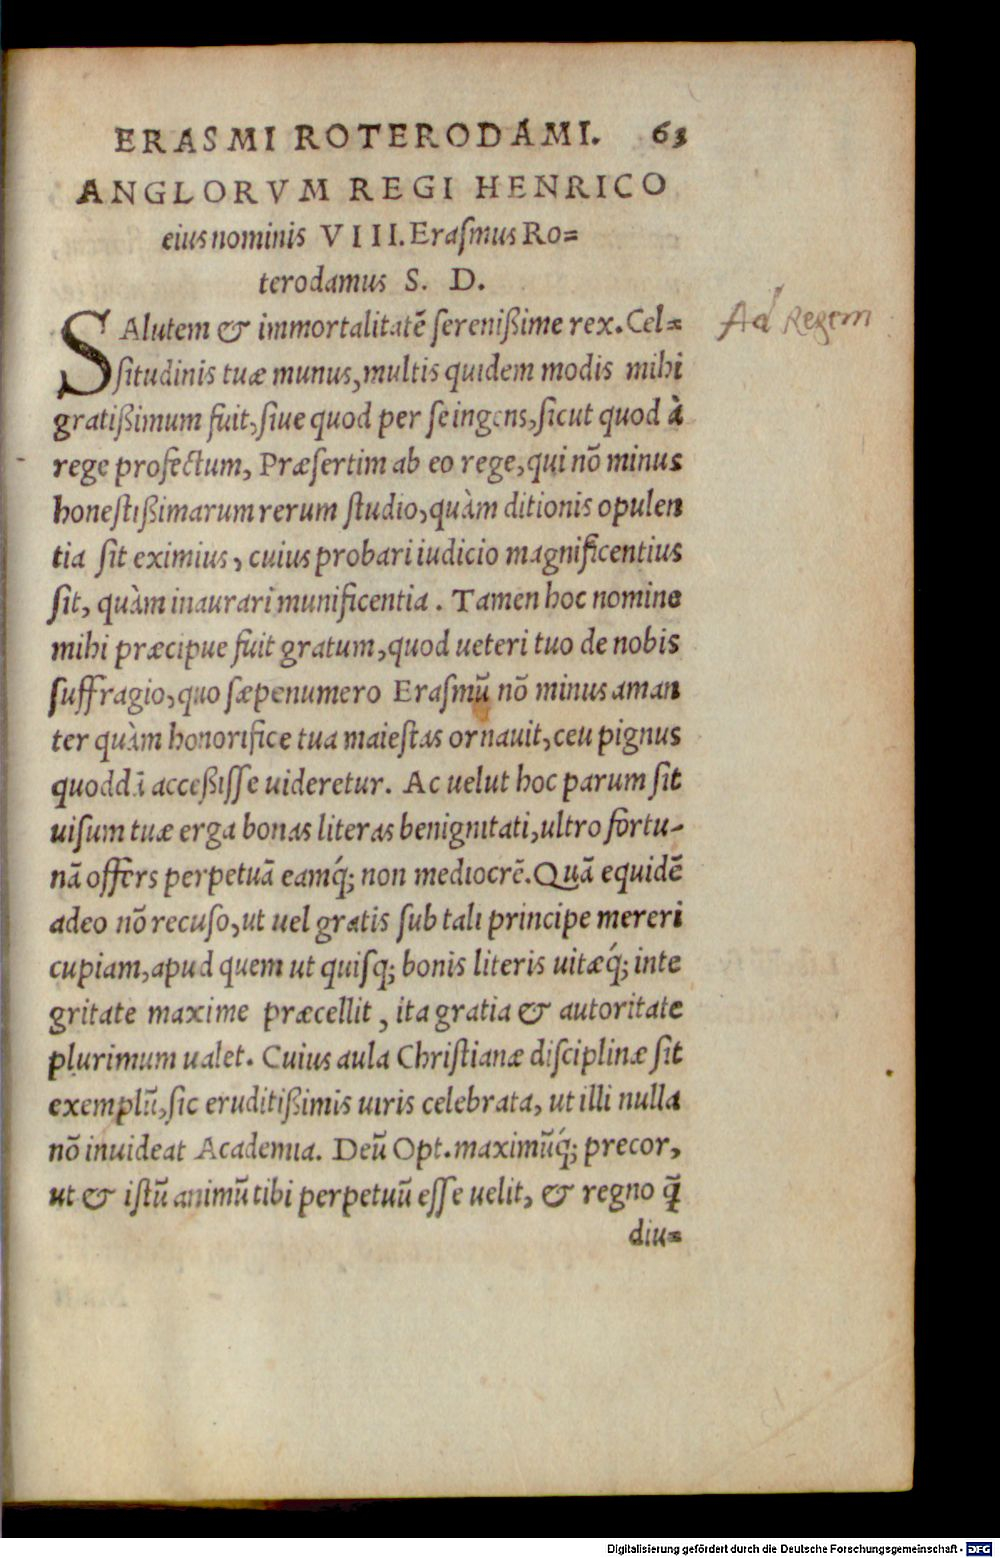 ERASMI ROTERODAMI. 63
ANGLORVM REGI HENRICO
eius nominis VIII. Erasmus Ro=
terodamus S. D.
SAlutem & immortalitatē sereniſſime rex. Cel=
ſitudinis tuæ munus, multis quidem modis mihi
gratißimum fuit, ſiue quod per ſe ingens, ſicut quod à
rege profectum, Præſertim ab eo rege, qui nō minus
honeſtißimarum rerum ſtudio, quàm ditionis opulen
tia ſit eximius, cuius probari iudicio magnificentius
ſit, quàm inaurari munificentia. Tamen hoc nomine
mihi præcipue fuit gratum, quod ueteri tuo de nobis
ſuffragio, quo ſæpenumero Eraſmū nō minus aman
ter quàm honorifice tua maieſtas ornauit, ceu pignus
quoddā acceßiſſe uideretur. Ac uelut hoc parum ſit
uiſum tuæ erga bonas literas benignitati, ultro fortu-
nā offers perpetuā eamq́; non mediocrē. Quā equidē
adeo nō recuſo, ut uel gratis ſub tali principe mereri
cupiam, apud quem ut quiſq; bonis literis uitæq́; inte
gritate maxime præcellit, ita gratia & autoritate
plurimum ualet. Cuius aula Chriſtianæ diſciplinæ ſit
exemplū, ſic eruditißimis uiris celebrata, ut illi nulla
nō inuideat Academia. Deū Opt. maximūq́; precor,
ut & iſtū animū tibi perpetuū eſſe uelit, & regno q̄
diu=
Ad Regem
Digitalisierung gefördert durch die Deutsche Forschungsgemeinschaft - DFG